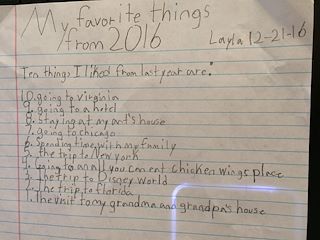 My favorite things
from 2016
Layla 12-21-16
Ten things I liked from last year are:
10. going to virginia
9. going to a hotel
8. staying at my ant's house
7. going to chicago
6. Spending time with my family
5. the trip to New york
4. going to an all you can eat chicken wings place
3. The trip to Disney World
2. The trip to florida
1. The visit to my grandma and grandpa's house